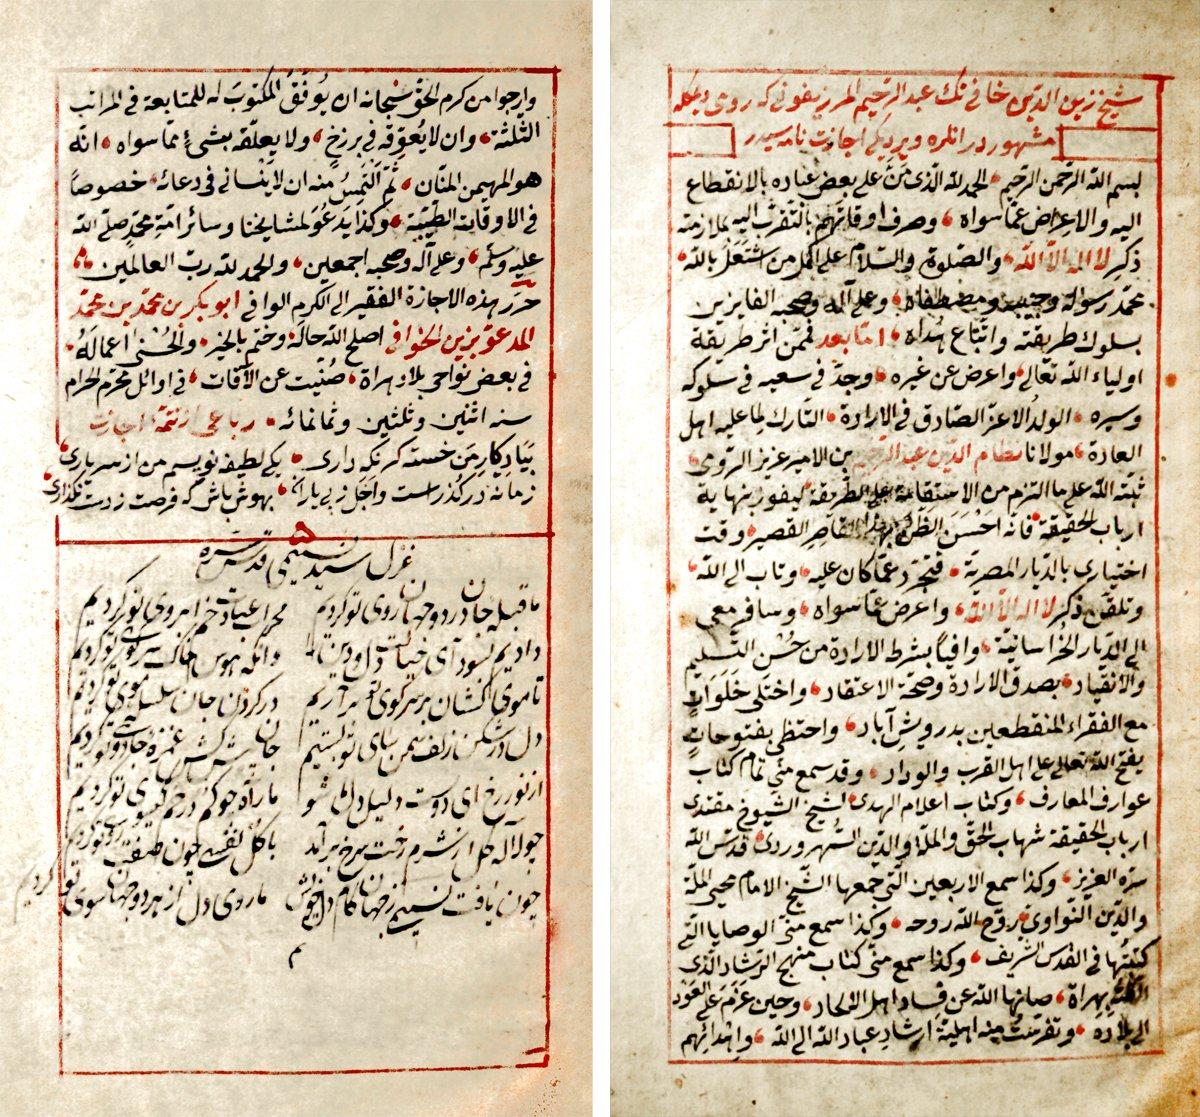 شیخ زین الدین خافی نک عبد الرحیم المرزیفونی که رومی دیمکله
مشهور در انلره ویردیکی اجازت نامه سیدر
بسم الله الرحمن الرحیم الحمد لله الذی منّ علی بعض عباده بالانقطاع
الیه والاعراض عمّا سواه وصرف اوقاتهم بالتقرّب الیه بملازمة
ذکر لا اله الّا الله والصلوة والسلام علی اکمل من اشتغل بالله
محمّد رسوله وحبیبه ومصطفاه وعلی آله وصحبه الفایزین
بسلوك طریقته واتّباع هُداه امّا بعد فممّن اثر طریقة
اولیاء الله تعالی واعرض عن غیره وجدّ فی سعیه فی سلوکه
وسیره الولدُ الاعزّ الصّادق فی الارادة التّارك لما علیه اهل
العادة مولانا نظام الدین عبد الرحیم بن الامیر عزیز الرّومی
ثبّته الله علی ما التزم من الاستقامة علی الطّریقة لیفوز بنهایة
ارباب الحقیقة فانّه احْسَنَ الظّنّ بهذا القاصِر القصیر وقت
اختیاری بالدّیار المصریة فتجرّد عمّا کان علیه وتاب الی الله
وتلقّن ذِکر لا اله الّا الله واعرض عمّا سواه وسافر معی
الی الدّیار الخراسانیّة وافیاً بشرط الارادة من حُسْن التسلیم
والانقیاد بصدق الارادة وصحّة الاعتقاد واختلی خَلَوَاتٍ
مع الفقراء المنقطعین بدرویش آباد واحتظی بفتوحاتٍ
یفتح الله تعالی علی اهل القرب والوداد وقد سمع منّی تمام کتاب
عوارف المعارف وکتاب اعلام الهدی لشیخ الشیوخ مقتدی
ارباب الحقیقة شهاب الحقّ والملّة والدّین السّهروردی قدّس الله
سرّه العزیز وکذا سمع الاربعین الّتی جمعها الشّیخ الامام محیی الملّة
والدّین النّواوی روّح الله روحه وکذا سمع منّی الوصایا الّتی
کتبتُها فی القدس الشریف وکذا سمع منّی کتاب منهج الرّشاد الّذی
الّفتُه بهراة صانها الله عن فساد اهل الالحاد وحین عَزَمَ علی العَوْد
الی بلاده وتفرّستُ منه اهلیّة ارشادِ عباد الله الی الله واِهدائِهم
وارجوا من کرم الحقّ سبحانه ان یُوَفّقَ المکتوبَ له للمتابعة فی المراتب
الثلثة وان لا یُعوّقه فی برزخٍ ولا یعلّقه بشیءٍ ممّا سواه انّه
هو المهیمن المنّان ثُمّ الْتَمِسُ منه ان لا ینسانی فی دعائه خصوصاً
فی الاوقات الطیّبة وکذا یدعُوَ لمشایخنا وسائر امّة محمّدٍ صلّی الله
علیه وسلّم وعلی آله وصحبه اجمعین والحمد لله ربّ العالمین
حرّر هذه الاجازة الفقیر الی الکرم الوافی ابو بکر بن محمّد بن محمّد
المدعوّ بزین الخوافی اصلح الله حاله وختم بالخیر والحُسْنی اعمالَهُ
فی بعض نواحی بلاد هراة صُنیت عن الآفات فی اوائل محرّم الحرام
سنه اثنین وثلثین وثمانمائه رباعی از تتمّۀ اجازت
بیادکار من خسته کر نکه داری یکی لطیفه نویسم من از سر یاری
زمانه در کذرست واجل ز پی یارانه بهوش باش که فرصت زدست نکذاری
غزل سید نسیمی قدس سره
ما قبلۀ جان در دو جهان روی تو کردیم محراب عبادت خم ابروی تو کردیم
دادیم بسودای خیالت دل و دین را وانکه بهوس خاک سر کوی تو کردیم
تا موی کشان بر سر کوی تو بر آریم در کردن جان سلسلۀ موی تو کردیم
دل در شکن زلف سمن سای تو بستیم جان پیش کش غمزۀ جادوی تو کردیم
از نور رخ ای دوست دلیل دل ما شو ما راه چو کم در خم کیسوی تو کردیم
چو لاله کل از شرم رخت سرخ بر آمد با کل نفسی چون صفت روی تو کردیم
چون یافت نسیمی ز جهان کام دل خویش ما روی دل از هر دو جهان سوی تو کردیم
م